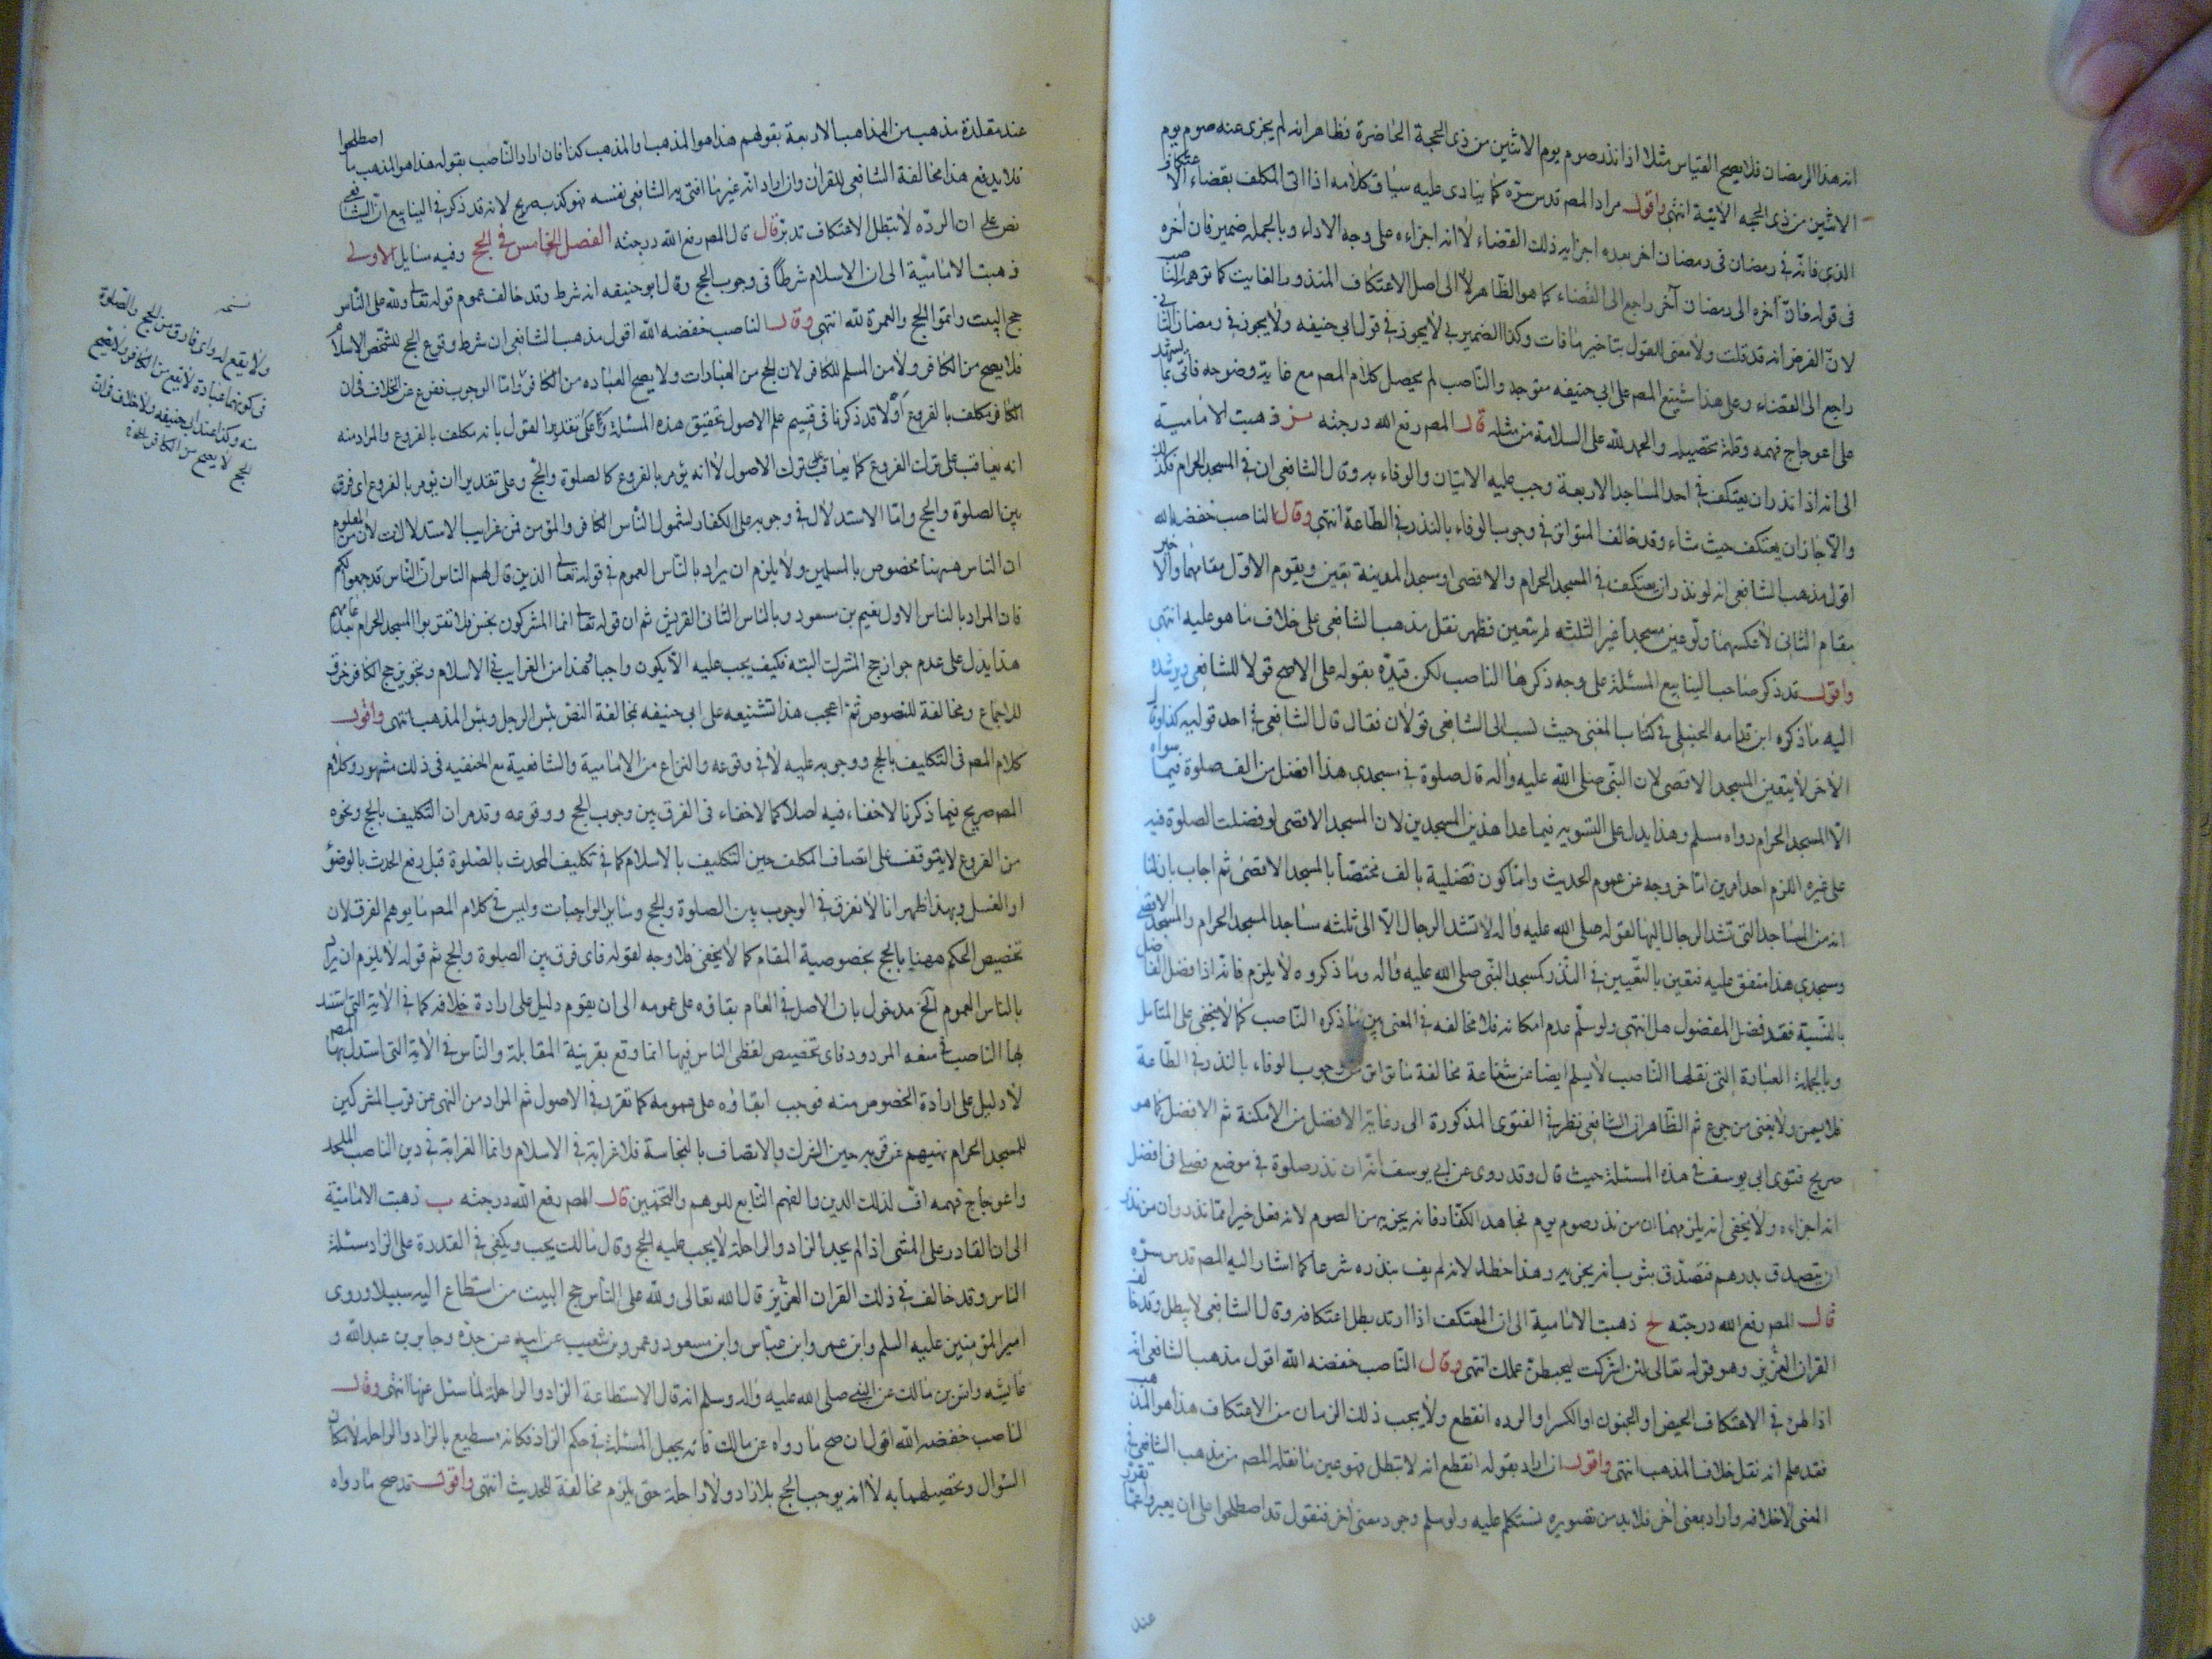 انه هذا الرمضان فلا يصح القياس مثلا اذا نذر صوم يوم الاثنين من ذى الحجة الحاضرة فظاهر انه لم يجزى عنه صوم يوم
الاثنين من ذى الحجه الاتية انتهى واقول مراد المصم قدس سره كما ينادى عليه سياق كلامه اذا اتى المكلف بقضاء الاعتكاف
الذى فاته فى رمضان فى رمضان اخر بعده اجزا به ذلك القضاء لا انه اجزاءه على وجه الاداء وبالجمله ضمير فان اخره
فى قوله فان آخره الى رمضان آخر راجع الى القضاء كما هو الظاهر لا الى اصل الاعتكاف المنذور الفايت كما توهمه الناصب
لان الفرض انه قد فات ولا معنى للقول بتاخير ما فات وكذا الضمير فى لا يجوز فى قول ابى حنيفه ولا يجوز فى رمضان الثانى
راجع الى القضاء وعلى هذا تشنيع المصم على ابى حنيفه متوجه والناصب لم يحصل كلام المصم مع غاية وضوحه فاتى بما يشهد
على اعوجاج فهمه وقلة تحصيله والحمد لله على السلامة من مثله قال المصم رفع الله درجته ز ذهبت الامامية
الى انه اذا نذر ان يعتكف فى احد المساجد الاربعة وجب عليه الاتيان والوفاء به وقال الشافعى ان فى المسجد الحرام فكذلك
والا جاز ان يعتكف حيث شاء وقد خالف المتواتر فى وجوب الوفاء بالنذر فى الطاعة انتهى وقال الناصب خفضه الله
اقول مذهب الشافعى انه لو نذر ان يعتكف فى المسجد الحرام والاقصى او مسجد المدينة تعين ويقوم الاول مقامهما والاخير
مقام الثانى لا عكسهما ولو عين مسجدا غير الثلثه لم يتعين فظهر نقل مذهب الشافعى على خلاف ما هو عليه انتهى
واقول قد ذكر صاحب الينابيع المسئلة على وجه ذكرها الناصب لكن قيده بقوله على الاصح قولا للشافعى ويرشد
اليه ما ذكره ابن قدامه الحنبلى فى كتاب المغنى حيث نسب الى الشافعى قولان فقال قال الشافعى فى احد قوليه كذا وقال
الاخر لا يتعين المسجد الاقصى لان النبى صلى الله عليه واله قال صلوة فى مسجدى هذا افضل من الف صلوة فيما سواه
الا المسجد الحرام رواه مسلم وهذا يدل على التسويه فيما عدا هذين المسجدين لان المسجد الاقصى لو فضلت الصلوة فيه
على غيره للزم احد امرين اما خروجه عن عموم الحديث واما كون فضيلة بالف مختصا بالمسجد الاقصى ثم اجاب بان لنا
انه من المساجد التى تشد الرحال اليها لقوله صلى الله عليه واله لا تشد الرحال الا الى ثلثه مساجد المسجد الحرام والمسجد الاقصى
ومسجدى هذا متفق عليه فتعين بالتعيين فى النذر كمسجد النبى صلى الله عليه واله وما ذكروه لا يلزم فانه اذا فضل الفاضل
بالف فقد فضل المفضول هل انتهى ولو سلم عدم امكانه فلا مخالفه فى المعنى بين ما ذكره الناصب كما لا يخفى على المتامل
وبالجملة العبارة التى نقلها الناصب لا يسلم ايضا عن شناعة مخالفة ما تواتر من وجوب الوفاء بالنذر فى الطاعة
فلا يسمن ولا يغنى من جوع ثم الظاهر ان الشافعى نظر فى الفتوى المذكورة الى رعاية الافضل من الامكنة ثم الافضل كما هو
صريح فتوى ابى يوسف فى هذه المسئلة حيث قال وقد روى عن ابى يوسف انه ان نذر صلوة فى موضع فصلى فى افضل
انه اجزاءه ولا يخفى انه يلزمهما ان من نذر صوم يوم فجاهد الكفار فانه يجزيه من الصوم لانه فعل خيرا مما نذر وان من نذر
ان يتصدق بدرهم فتصدق بثوب انه يجزيه وهذا خطا لانه لم يف بنذره شرعا كما اشار اليه المصم قدس سره
قال المصم رفع الله درجته ح ذهبت الامامية الى ان المعتكف اذا ارتد بطل اعتكافه وقال الشافعى لا يبطل وقد خالف
القران العزيز وهو قوله تعالى لئن اشركت ليحبطن عملك انتهى وقال الناصب خفضه الله اقول مذهب الشافعى انه
اذا طرء فى الاعتكاف الحيض او الجنون او السكر او الرده انقطع ولا يجب ذلك الزمان من الاعتكاف هذا هو المذهب
فقد علم انه نقل خلاف المذهب انتهى واقول ان اراد بقوله انقطع انه لا تبطل فهو عين ما نقله المصم من مذهب الشافعى فى
المعنى لا خلافه وان اراد معنى اخر فلا بد من تصويره نتكلم عليه ولو سلم وجود معنى اخر فنقول قد اصطلحوا على ان يعبروا عما تقرر
عند
عند مقلدة مذهب من المذاهب الاربعة بقولهم هذا هو المذهب او المذهب كذا فان اراد الناصب بقوله هذا هو المذهب ما اصطلحوا
فلا يدفع هذا مخالفة الشافعى للقران وان اراد انه عين ما افتى به الشافعى نفسه فهو كذب صريح لانه قد ذكر فى الينابيع ان الشافعى
نص على ان الرده لا تبطل الاعتكاف تدبر قال قال المصم رفع الله درجته الفصل الخامس فى الحج وفيه مسايل الاولى
ذهبت الامامية الى ان الاسلام شرطا فى وجوب الحج وقال ابو حنيفه انه شرط وقد خالف عموم قوله تعالى ولله على الناس
حج البيت واتموا الحج والعمرة لله انتهى وقال الناصب خفضه الله اقول مذهب الشافعى ان شرط وقوع الحج للشخص الاسلام
فلا يصح من الكافر ولا من المسلم للكافر لان الحج من العبادات ولا يصح العباده من الكافر واما الوجوب ففرع عن الخلاف فى ان
الكافر مكلف بالفروع اولا قد ذكرنا فى قسم علم الاصول تحقيق هذه المسئلة وعلى تقدير القول بانه مكلف بالفروع والمراد منه
انه يعاقب على ترك الفروع كما يعاقب على ترك الاصول لا انه يؤمر بالفروع كالصلوة والحج وعلى تقدير ان يؤمر بالفروع اى فرق
بين الصلوة والحج واما الاستدلال فى وجوبه على الكفار لشمول الناس الكافر والمؤمن فمن غرايب الاستدلالات لان من المعلوم
ان الناس ههنا مخصوص بالمسلمين ولا يلزم ان يراد بالناس العموم فى قوله تعالى الذين قال لهم الناس ان الناس قد جمعوا لكم
فان المراد بالناس الاول نعيم بن مسعود وبالناس الثانى القريش ثم ان قوله تعالى انما المشركون نجس فلا تقربوا المسجد الحرام بعد عامهم
هذا يدل على عدم جواز حج المشرك البته فكيف يجب عليه الا يكون واجبا فهذا من الغرايب فى الاسلام وتجويز حج الكافر خرق
للاجماع ومخالفة للنصوص ثم اعجب هذا تشنيعه على ابى حنيفه بمخالفة النص بئس الرجل وبئس المذهب انتهى واقول
كلام المصم فى التكليف بالحج ووجوبه عليه لا فى وقوعه والنزاع من الامامية والشافعية مع الحنفيه فى ذلك مشهور وكلام
المصم صريح فيما ذكرنا لا خفاء فيه اصلا كما لا خفاء فى الفرق بين وجوب الحج ووقوعه وقد مر ان التكليف بالحج ونحوه
من الفروع لا يتوقف على اتصاف المكلف حين التكليف بالاسلام كما فى تكليف المحدث بالصلوة قبل رفع الحدث بالوضو
او الغسل وبهذا ظهر انا لا نفرق فى الوجوب بين الصلوة والحج وساير الواجبات وليس فى كلام المصم ما يوهم الفرق لان
تخصيص الحكم ههنا بالحج بخصوصية المقام كما لا يخفى فلا وجه لقوله فاى فرق بين الصلوة والحج ثم قوله لا يلزم ان يراد
بالناس العموم آلخ مدخول بان الاصل فى العام بقاؤه على عمومه الى ان يقوم دليل على ارادة خلافه كما فى الاية التى استند
بها الناصب فى منعه المردود فان تخصيص لفظى الناس فيها انما وقع بقرينة المقابلة والناس فى الاية التى استدل بها المصم
لا دليل على ارادة الخصوص منه فوجب ابقاؤه على عمومه كما تقرر فى الاصول ثم المراد من النهى عن قرب المشركين
للمسجد الحرام نهيهم عن قربه حين الشرك والاتصاف بالنجاسة فلا غرابة فى الاسلام وانما الغرابة فى دين الناصب الملحد
واعوجاج فهمه اف لذلك الدين والفهم التابع للوهم والتخمين قال المصم رفع الله درجته ب ذهبت الامامية
الى ان القادر على المشى اذا لم يجد الزاد والراحلة لا يجب عليه الحج وقال مالك يجب ويكفى فى القدرة على الزاد مسئلة
الناس وقد خالف فى ذلك القران العزيز قال الله تعالى ولله على الناس حج البيت من استطاع اليه سبيلا وروى
امير المؤمنين عليه السلم وابن عمر وابن عباس وابن مسعود وعمرو بن شعيب عن ابيه عن جده وجابر بن عبدالله و
عايشه وانس بن مالك عن النبى صلى الله عليه واله وسلم انه قال الاستطاعة الزاد والراحلة لما سئل عنها انتهى وقال
الناصب خفضه الله اقول ان صح ما رواه عن مالك فانه يجعل المسئلة فى حكم الزاد فكانه مستطيع بالزاد والراحلة لامكان
السؤال وتحصيلهما به لا انه يوجب الحج بلا زاد ولا راحلة حتى يلزم مخالفة للحديث انتهى واقول قد صح ما رواه
ولا يقع له واى فارق بين الحج والصلوة
فى كونهما عبادة لا يقع من الكافر ولا يصح
منه وكذا عند ابى حنيفه ولا خلاف فى ان
الحج لا يصح من الكافر